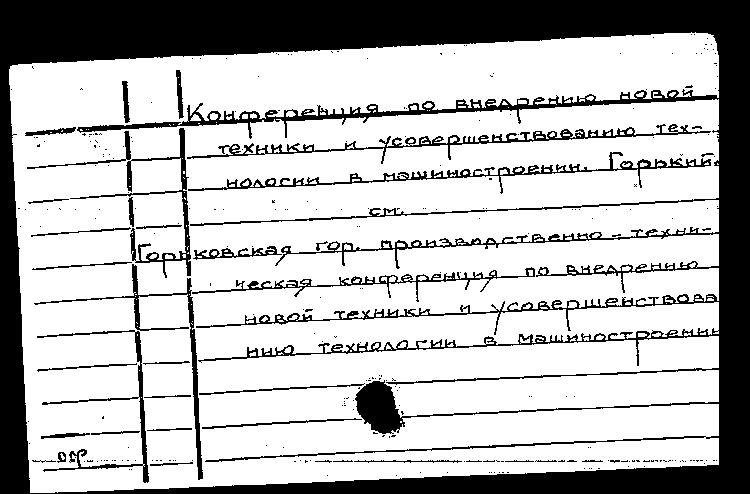 Конференция по внедрению новой
техники и усовершенствованию тех-
нологии в машиностроении. Горький.
см.
Горьковская гор. производственно-техни-
ческая конференция по внедрению
новой техники и усовершенствова
нию технологии в машиностроении